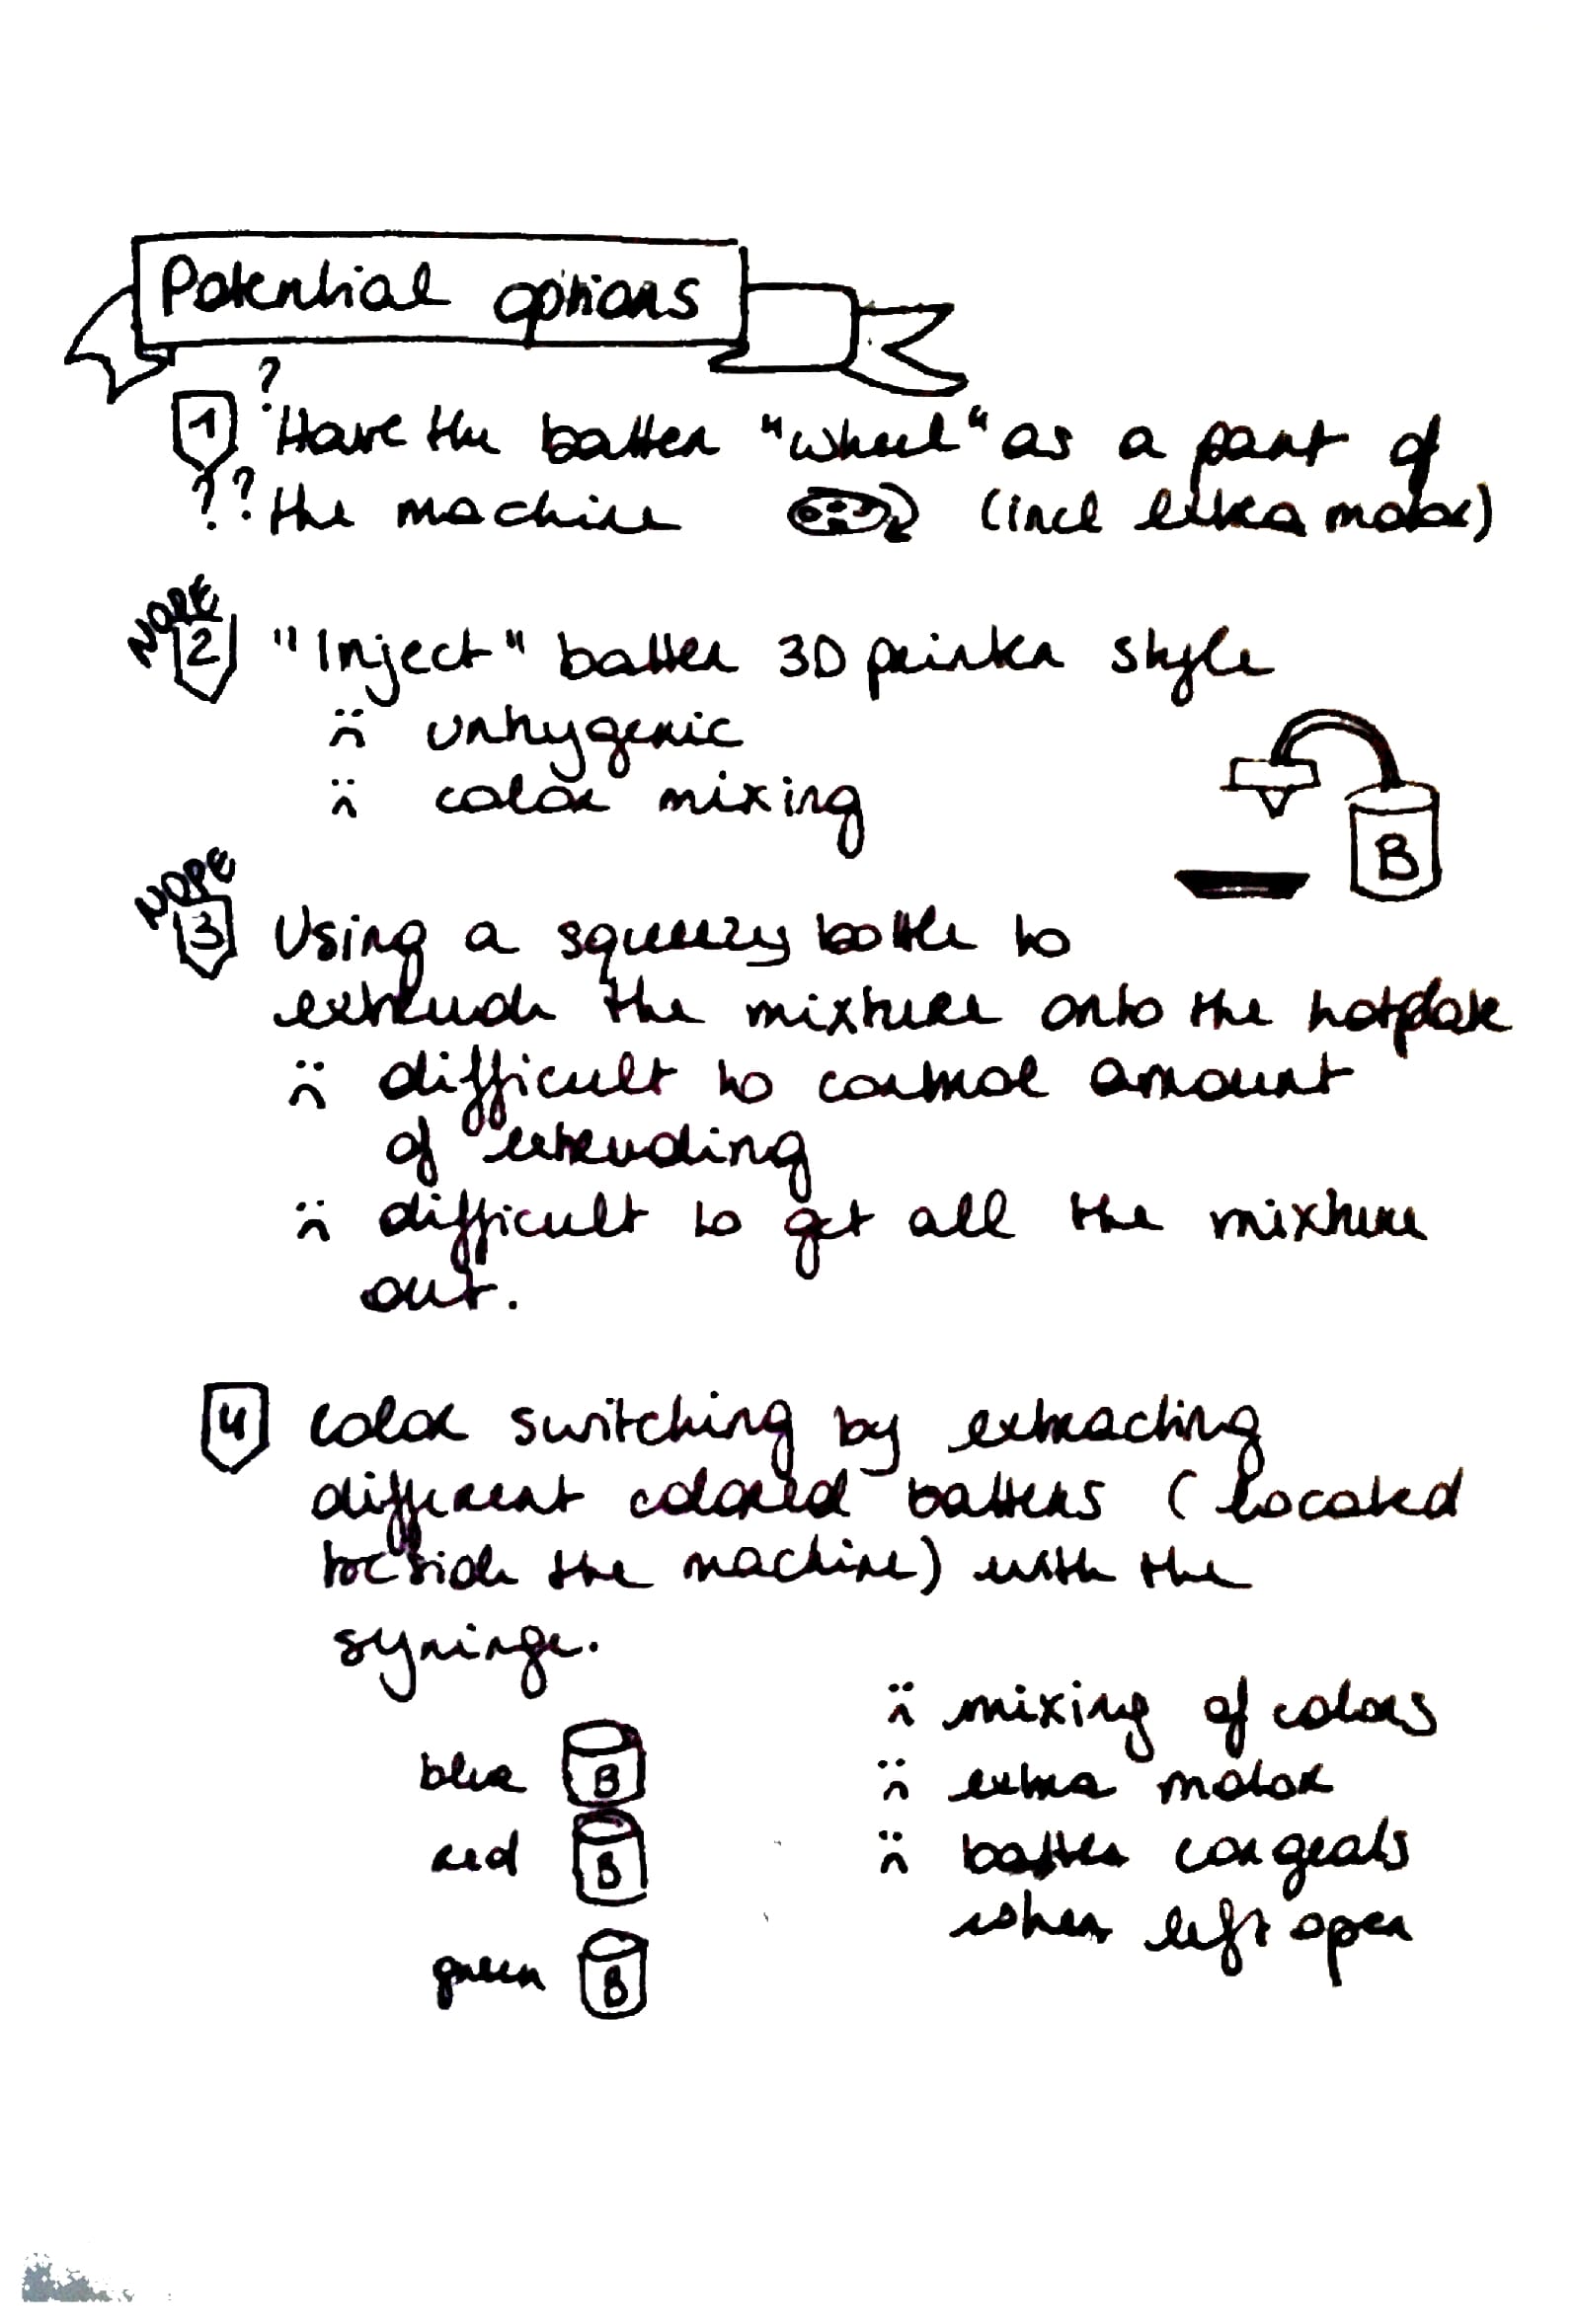 Potential options
?
1 Have the batter "wheel" as a part of
?? the machine (incl extra motor)
NOPE
2 "Inject" batter 3D printer style
unhygenic
color mixing
B
NOPE
3 Using a squeezy bottle to
extrude the mixture onto the hotplate
difficult to control amount
of extruding
difficult to get all the mixture
out.
4 Color switching by extracting
different colored batters (located
the machine) with the
syringe.
blue B
red B
green B
mixing of colors
extra motor
batter congeals
when left open